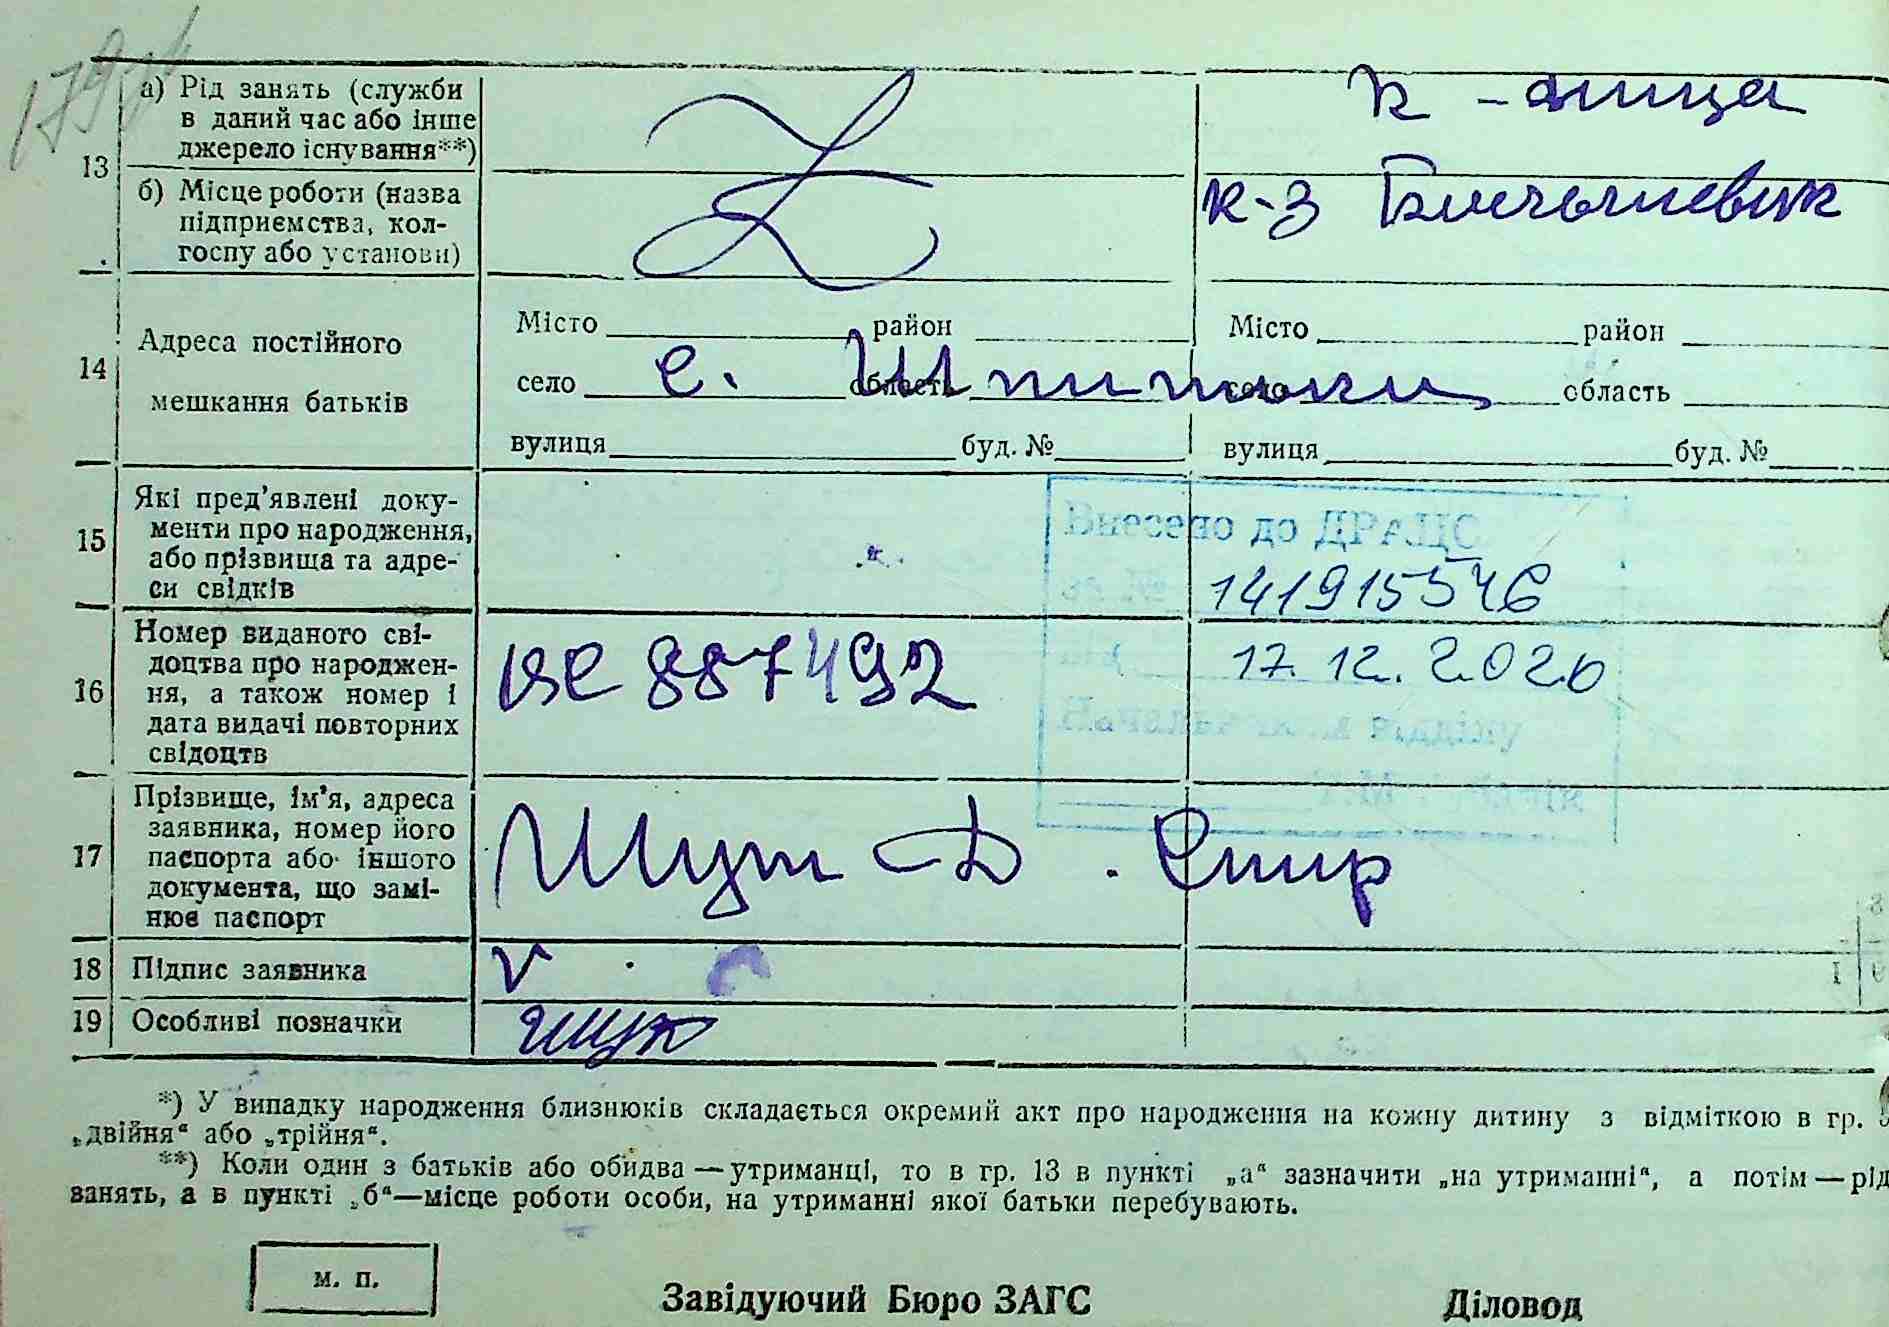 а) Рід занять (служби
в даний час або інше
джерело існування**)
к-ница
13
б) Місце роботи (назва
підприємства, кол-
госпу або установи)
к-з Більшовик
14
Адреса постійного
мешкання батьків
Місто район Місто район
село с. Шпитьки область село область
вулиця буд. № вулиця буд. №
15
Які пред’явлені доку-
менти про народження,
або прізвища та адре-
си свідків
Внесено до ДРАЦС
за № 141915546
від 17.12.2020
Начальник відділу
16
Номер виданого сві-
доцтва про народжен-
ня, а також номер і
дата видачі повторних
свідоцтв
887492
17
Прізвище, ім’я, адреса
заявника, номер його
паспорта або іншого
документа, що замі-
нює паспорт
Шут Д. Спир
18 Підпис заявника V
19 Особливі позначки
*) У випадку народження близнюків складається окремий акт про народження на кожну дитину з відміткою в гр. 5
„двійня“ або „трійня“.
**) Коли один з батьків або обидва — утриманці, то в гр. 13 в пункті „а“ зазначити „на утриманні“, а потім — рід
занять, а в пункті „б“—місце роботи особи, на утриманні якої батьки перебувають.
м. п.
Завідуючий Бюро ЗАГС Діловод